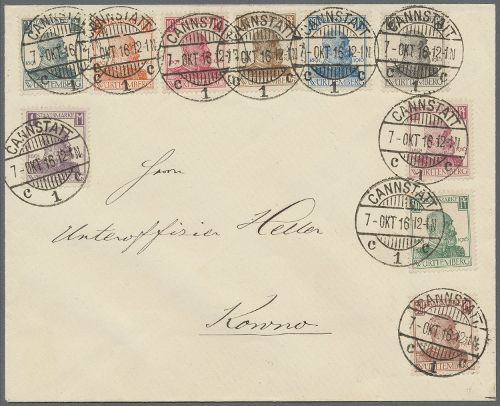 CANNSTATT
7-OKT 16 12-1N
c 1 c
CANNSTATT
7-OKT 16 12-1N
c 1 c
CANNSTATT
7-OKT 16 12-1N
c 1 c
CANNSTATT
7-OKT 16 12-1N
c 1 c
CANNSTATT
7-OKT 16 12-1N
c 1 c
CANNSTATT
7-OKT 16 12-1N
c 1 c
WÜRTTEMBERG
CANNSTATT
7-OKT 16 12-1N
c 1 c
CANNSTATT
7-OKT 16 12-1N
c 1 c
WÜRTTEMBERG
CANNSTATT
7-OKT 16 12-1N
c 1 c
1916
WÜRTTEMBERG
CANNSTATT
7-OKT 16 12-1N
c 1 c
Herrn
Unteroffizier Heller
Kowno